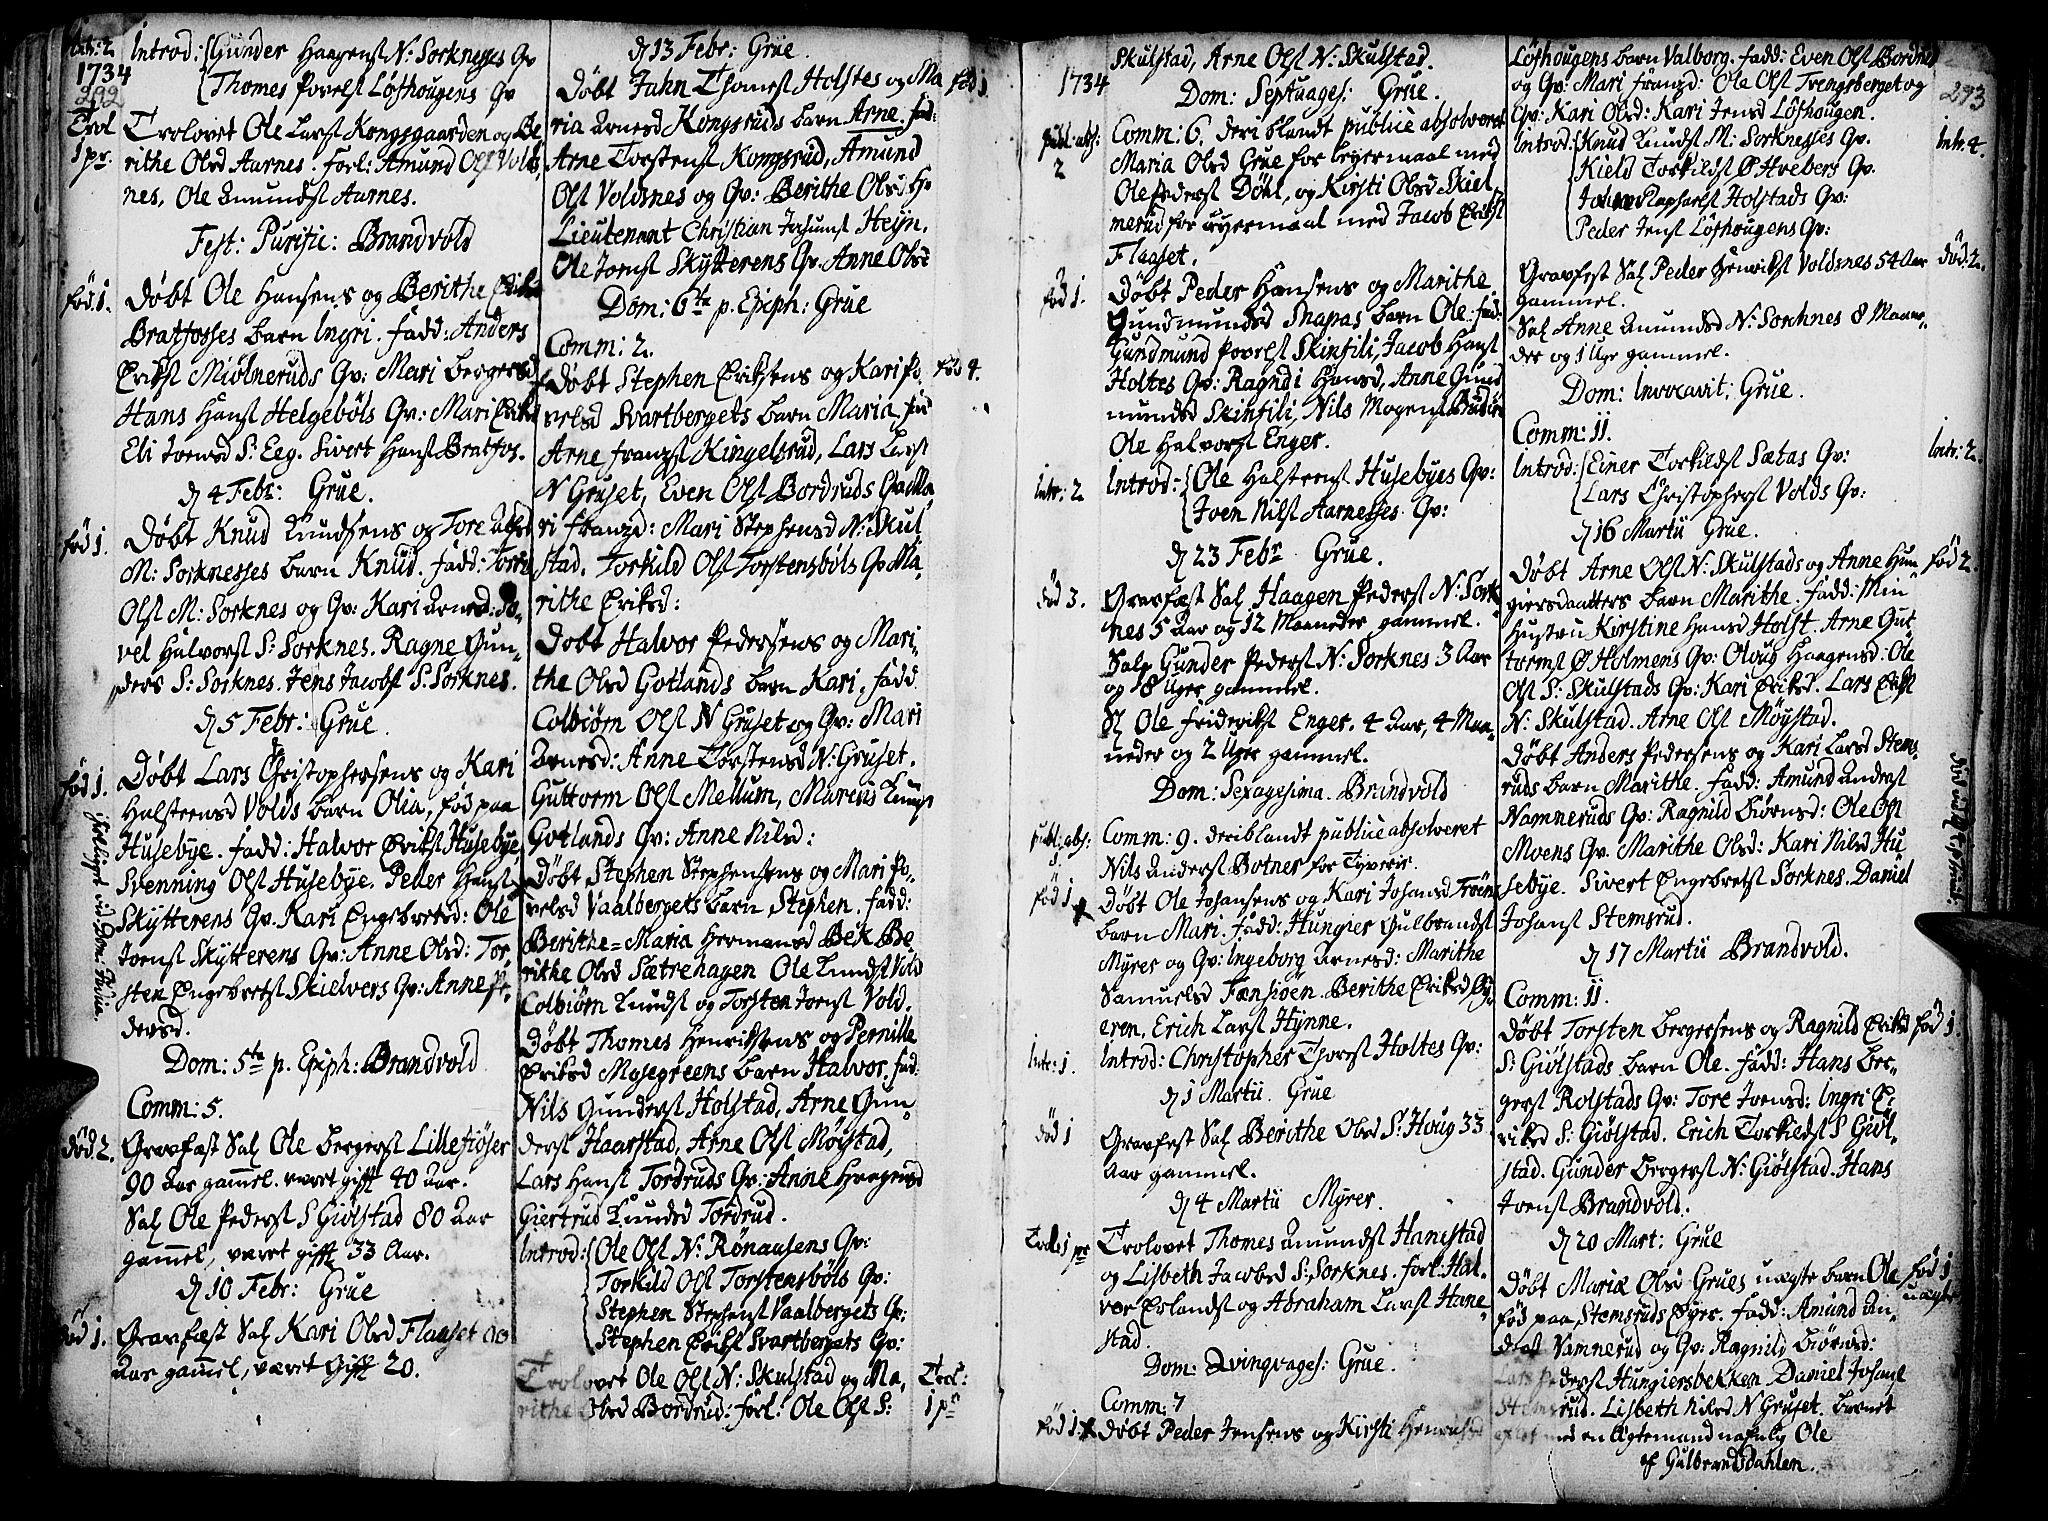 Intr: 2
1734
292
Introd: Gunder Haagens N: Sorknesses Qv
Thomes Povels Löfhougens Qv
Trol
1 pr.
Trolovet Ole Lars Kongsgaarden og Be
rithe Olsd Aarnes. forl: Amund Ols Volds
nes, Ole Amunds Aarnes.
Fest: Purific: Brandvold
fød 1.
Døbt Ole Hansens og Berithe Eriksd
Bratfosses barn Ingri. fadd: Anders
Eriks Miölneruds Qv: Mari Bergersd
Hans Hans Helgebøls Qv: Mari Eriksd
Eli Joensd S: Eeg. Sivert Hans Bratfos.
d 4 Febr: Grue.
fød 1.
Døbt Knud Knudsens og Tore
M: Sorknesses barn Knud. fadd: Torer
Ols M: Sorknes og Qv: Kari Arnesd: Po
vel Halvors S: Sorknes. Ragne Gun
ders S: Sorknes. Jens Jacobs S: Sorknes.
d 5 Febr: Grue.
fød 1.
Døbt Lars Christophersens og Kari
Halsteensd Volds barn Olia, fød paa
Husebye. fadd: Halvor Eriks Husebye,
Svenning Ols Husebye. Peder Hans
Skytterens Qv. Kari Engebretsd: Ole
Joens Skytterens Qv: Anne Olsd: Tor
sten Engebrets Skielvers Qv: Anne Pe
dersd.
Dom: 5ta p. Epiph: Brandvold
Comm: 5.
død 2.
Gravfæst Sal Ole Bergers Lillefiöser
90 Aar gammel. været gifft 40 Aar.
Sal Ole Peders S Giølstad 80 Aar
gammel, været gifft 33 Aar.
d 10 Febr: Grue
død 1.
Gravfæst Sal Kari Olsd Flaaset 60
Aar gammel, været Gifft 20.
d 13 Febr: Grue.
fød 1
Døbt Jahn Thomes Holstes og Ma
ria Arnesd Kongsruds barn Arne. fad:
Arne Torstens Kongsrud, Amund
Ols Voldsnes og Qv: Berithe Olsd Hr
Lieutenant Christian Jochums Heyn.
Ole Joens Skytterens Qv. Anne Olsd
Dom: 6ta p. Epiph: Grue
Comm: 2.
fød 4.
Døbt Stephen Eriksens og Kari Po
velsd Svartbergets barn Maria, fad
Arne franzs Kingelsrud, Lars Lars
N Gruset, Even Ols Bordruds Qv: Ma
ri Franzd: Mari Stephensd N: Skul
stad. Torkild Ols Torstensbøls Qv Ma
rithe Eriksd:
Døbt Halvor Pedersens og Mari
the Olsd Gotlands barn Kari, fadd
Colbiørn Ols N Gruset og Qv: Mari
Arnesd: Anne Torstensd N: Gruset.
Guttorm Ols Mellum, Marcus Knuds
Gotlands Qv: Anne Nilsd:
Døbt Stephen Stephensens og Mari Po
velsd Vaalbergets barn Stephen. fadd:
Berithe-Maria Hermansd Bek Be
rithe Olsd Sætrehagen Ole Knuds Vold
Colbiørn Knuds og Torsten Joens Vold.
Døbt Thomes Henriksens og Pernille
Eriksd Mosegreens barn Halvor, fad
Nils Gunders Holstad, Arne Gun
ders Haarstad, Arne Ols Møystad,
Lars Hans Tordruds Qv: Anne Haagensd
Giertrud Knudsd Tordrud.
Introd: Ole Ols N: Rønausens Qv:
Torkild Ols Torstensbøls Qv:
Stephen Stephens Vaalbergets Qv:
Stephen Eriks Svartbergets Qv:
Trol:
1 pr
Trolovet Ole Ols N: Skulstad og Ma
rithe Olsd Bordrud: forl: Ole Ols S:
1734
Skulstad, Arne Ols N: Skulstad.
Dom: Septuages: Grue.
publ: abs:
2
Comm: 6. deriblandt publice absolveret
Maria Olsd Grue for leyermaal med
Ole Peders Döhl, og Kirsti Olsd Skiel
nerud for leyermaal med Jacob Eriks
Flaaset.
fød 1.
Døbt Peder Hansens og Marithe
Gundmundsd Snapas barn Ole. fad:
Gundmund Povels Skinfili, Jacob Hans
Holtes Qv: Ragndi Hansd, Anne Gund
mundsd Skinfili, Nils Mogens
Ole Halvors Enger.
Intr: 2
Introd: Ole Halsteens Husebyes Qv:
Joen Nils Aarnesses Qv:
d 23 Febr Grue.
død 3.
Gravfæst Sal Haagen Peders N: Sork
nes 5 Aar og 12 Maaneder gammel.
Salg Gunder Peders N: Sorknes 3 Aar
og 8 Uger gammel.
Sl Ole Frideriks Enger. 4 Aar, 4 Maa
neder og 2 Uger gammel.
Dom: Sexagesima. Brandvold
publ: abs:
1
Comm: 9. deriblandt publice absolveret
Nils Anders Botner for Tyverie.
fød 1
Døbt Ole Johansens og Kari Johansd
barn Mari. fadd: Hungier Gulbrands
Myrer og Qv: Ingeborg Arnesd: Marithe
Samuelsd Fænsiøen. Berithe Eriksd Øy
eren, Erich Lars Hynne.
Intr: 1.
Introd: Christopher Thors Holtes Qv:
d 1 Martii Grue
død 1
Gravfest Sal Berithe Olsd S: Houg 33
Aar gammel.
d 4 Martii Myrer.
Trol: 1 pr
Trolovet Thomes Amunds Hanestad
og Lisbeth Jacobsd S: Sorknes. forl: Hal
vor Erlands og Abraham Lars Hane
stad.
Dom: Qvinqvages: Grue.
Comm: 7
fød 1.
Døbt Peder Jensens og Kirsti Henriksd
293
Löfhougens barn Valborg. fadd: Even Ols Bordrud
og Qv: Mari franzd: Ole Ols Trengsberget og
Qv: Kari Olsd: Kari Jensd Löfhougen.
Intr. 4.
Introd: Knud Knuds M: Sorknesses Qv.
Kield Torkilds Ø Hvebers Qv.
Raphaels Holstads Qv:
Peder Jens Löfhougens Qv:
død: 2.
Gravfest Sal Peder Henriks Voldsnes 54 Aar
gammel.
Sal Anne Amundsd N: Sorknes 8 Maane
der og 1 Uge gammel.
Dom: Invocavit: Grue.
Comm: 11.
Intr: 2.
Introd: Einer Torkilds Sætas Qv:
Lars Christophers Volds Qv:
d 16 Martii Grue.
fød 2.
Døbt Arne Ols N: Skulstads og Anne Hun
giersdaatters barn Marithe. fadd: Min
Hustru Kirstine Hansd Holst. Arne Gut
torms Ø Holmens Qv: Olvug Haagensd: Ole
Ols S: Skulstads Qv: Kari Eriksd. Lars Eriks
N: Skulstad. Arne Ols Møystad.
Døbt Anders Pedersens og Kari Larsd Stems
ruds barn Marithe. fadd: Amund Anders
Namneruds Qv: Ragnild Biørnsd: Ole Ols
Moens Qv. Marithe Olsd: Kari Nilsd Hu
sebye. Sivert Engebrets Sorknes. Daniel
Johans Stemsrud.
d 17 Martii Brandvold.
Comm: 11.
fød 1.
Døbt Torsten Bergersens og Ragnild Eriksd
S: Giølstads barn Ole. fadd: Hans Ber
gers Rolstads Qv: Tore Joensd: Ingri E
riksd S: Giølstad. Erich Torkilds S Giøl
stad. Gunder Bergers N: Giølstad. Hans
Joens Brandvold.
d 20 Mart: Grue
fød 1
uægte
Døbt Mariæ Olsd Grues uægte barn Ole
fød paa Stemsruds Øyer. fadd: Amund An
ders Namnerud og Qv: Ragnild Biørnsd:
Lars Peders Hungiersbekken Daniel Johans
Stemsrud. Lisbeth Nilsd N Gruset. barnet
med en Ægtemand nafnlig Ole
af Gulbrandsdahlen.